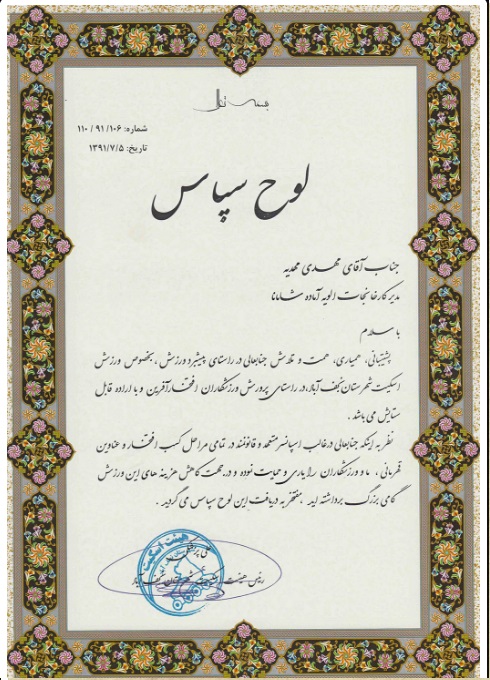 بسمه تعالی
شماره: ۱۰۶/ ۹۱ / ۱۱۰
تاریخ: ۱۳۹۱/۷/۵
لوح سپاس
جناب آقای مهدی محمدیه
مدیر کارخانجات الویه آماده شامانا
با سلام
پشتیبانی، همیاری، همت و تلاش جنابعالی در راستای پیشبرد ورزش، بخصوص ورزش
اسکیت شهرستان نجف آباد، در راستای پرورش ورزشکاران افتخارآفرین و با اراده قابل
ستایش می باشد.
نظر به اینکه جنابعالی در غالب اسپانسر متعهد و قانونمند در تمامی مراحل کسب افتخار و عناوین
قهرمانی، ما و ورزشکاران را یاری و حمایت نموده و در جهت کاهش هزینه های این ورزش
گامی بزرگ برداشته اید، مفتخر به دریافت این لوح سپاس می گردید.
رئیس هیئت اسکیت شهرستان نجف آباد
هیئت اسکیت